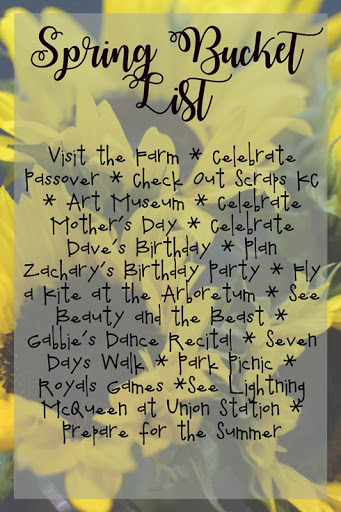 Spring Bucket
List
Visit the Farm * Celebrate
Passover * Check Out Scraps KC
* Art Museum * Celebrate
Mother's Day * Celebrate
Dave's Birthday * Plan
Zachary's Birthday Party * Fly
a Kite at the Arboretum * See
Beauty and the Beast *
Gabbie's Dance Recital * Seven
Days Walk * Park Picnic *
Royals Games *See Lightning
McQueen at Union Station *
Prepare for the Summer